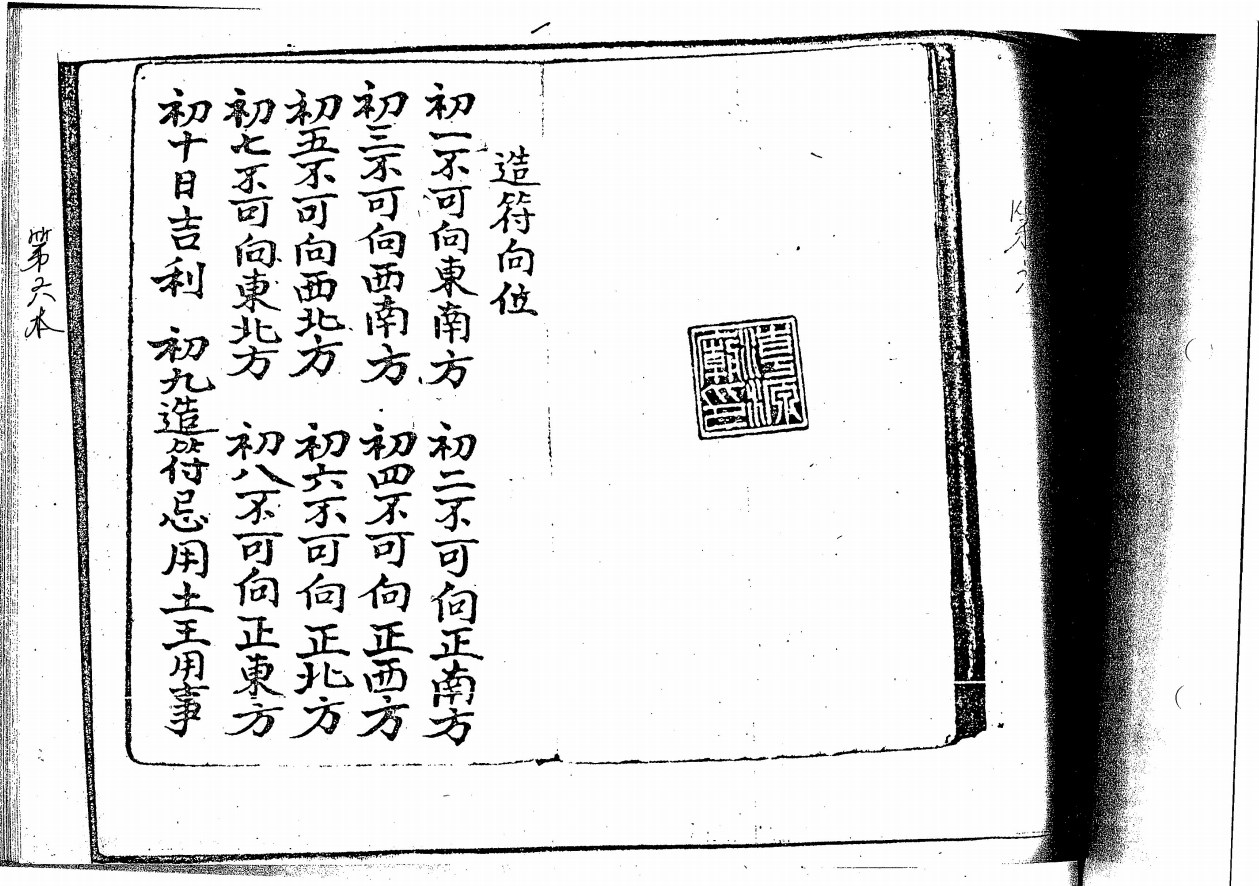 清源廟印
造符向位
初一不可向東南方 初二不可向正南方
初三不可向西南方 初四不可向正西方
初五不可向西北方 初六不可向正北方
初七不可向東北方 初八不可向正東方
初十日吉利 初九造符忌用土王用事
第六本